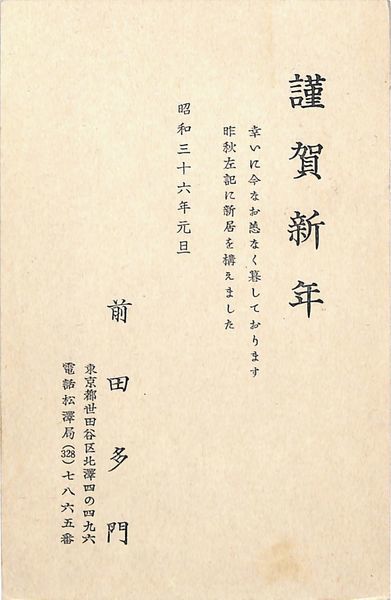 謹賀新年
幸いに今なお恙なく暮しております
昨秋左記に新居を構えました
昭和三十六年元旦
前田多門
東京都世田谷区北澤四の四九六
電話松澤局(328)七八六五番